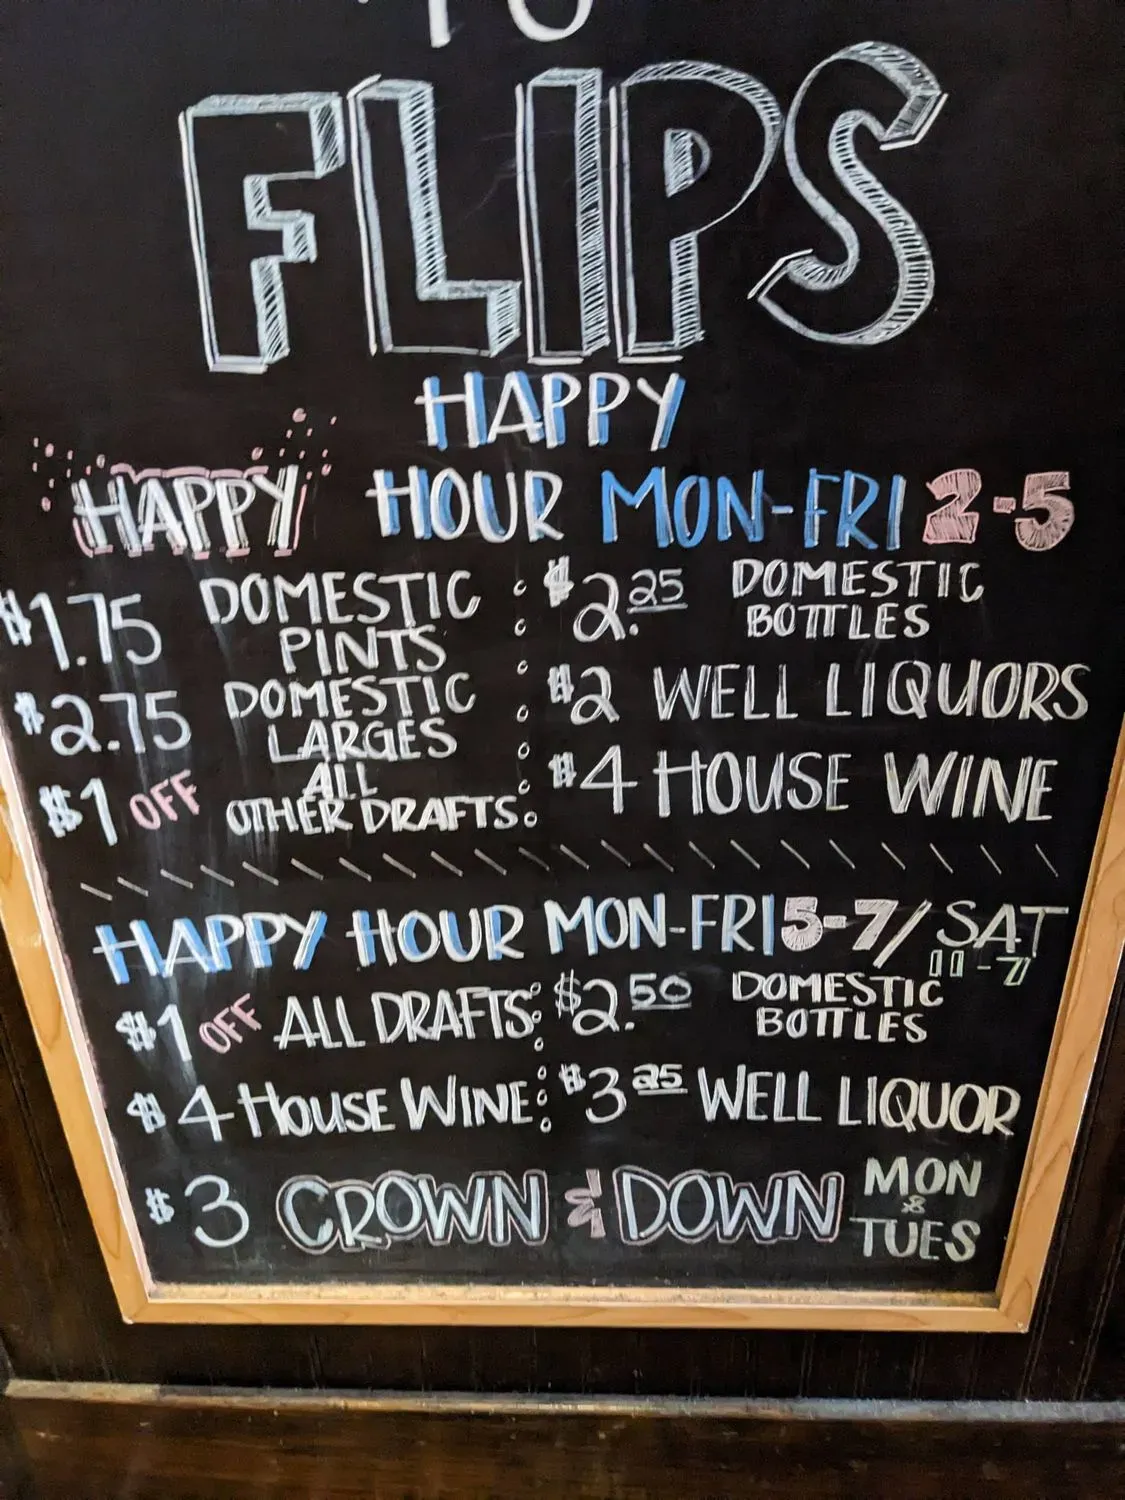 TO
FLIPS
HAPPY
HAPPY HOUR MON-FRI 2-5
$1.75 DOMESTIC PINTS
$2.75 DOMESTIC LARGES
$1 OFF ALL OTHER DRAFTS
$2.25 DOMESTIC BOTTLES
$2 WELL LIQUORS
$4 HOUSE WINE
HAPPY HOUR MON-FRI 5-7/SAT 11-7
$1 OFF ALL DRAFTS
$2.50 DOMESTIC BOTTLES
$4 HOUSE WINE
$3 25 WELL LIQUOR
$3 CROWN & DOWN MON & TUES